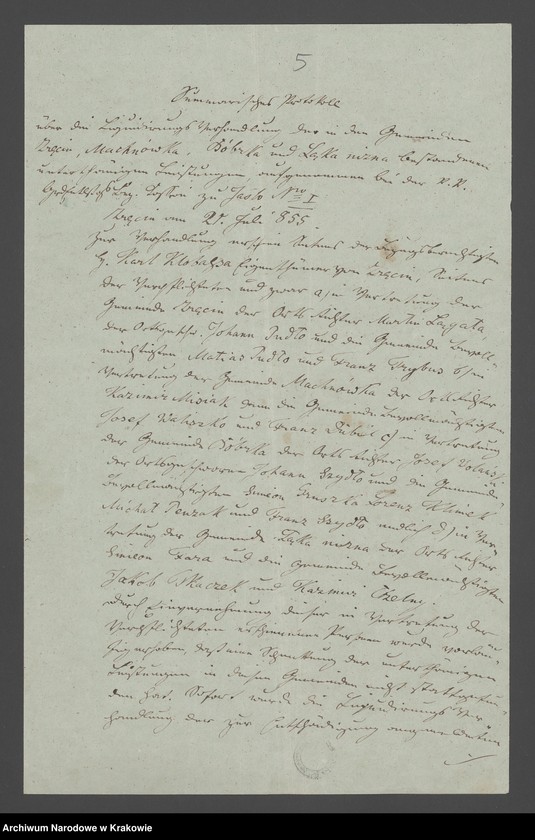 5
Summarisches Protokoll
über die Liquidirungs Verhandlung der in den Gemeinden
Zręcin, Machnówka, Bóbrka und Łąka nizna bestandenen
unterthänigen Leistungen, aufgenommen bei der k. k.
Bez. zu Jasło Nro I
Zręcin am 27. Juli 855.
Zur Verhandlung erschien Seitens der Bezugsberechtigten
H. Karl Klobassa Eigenthümer von Zręcin, Seitens
der Verpflichteten und zwar a) in Vertretung der
Gemeinde Zręcin der Orts Richter Martin
der Ortsgeschw. Johann Pudło und die Gemeinde Bevoll-
mächtigten Matias Pudło und Franz b) in
Vertretung der Gemeinde Machnówka der Orts Richter
Kazimir Misiak dann die Gemeinde Bevollmächtigten
Josef und Franz c) in Vertretung
der Gemeinde Bóbrka der Orts Richter Josef
der Ortsgeschworene Johann Szydło und die Gemeinde
bevollmächtigten Simeon Lorenz Klimek
Michał und Franz Szydło endlich d) in Ver-
tretung der Gemeinde Łąka nizna der Orts Richter
Simeon Fara und die Gemeinde Bevollmächtigten
Jakob und Kazimir
Durch Einvernehmung dieser in Vertretung der
Verpflichteten erschienenen Personen wurde vorläu-
fig erhoben, daß eine Schenkung der unterthänigen
Leistungen in diesen Gemeinden nicht stattgefun-
den hat. Sofort wurde die Liquidirungs Ver-
handlung der zur Entschädigung angemeldeten
Archiwum Narodowe w Krakowie